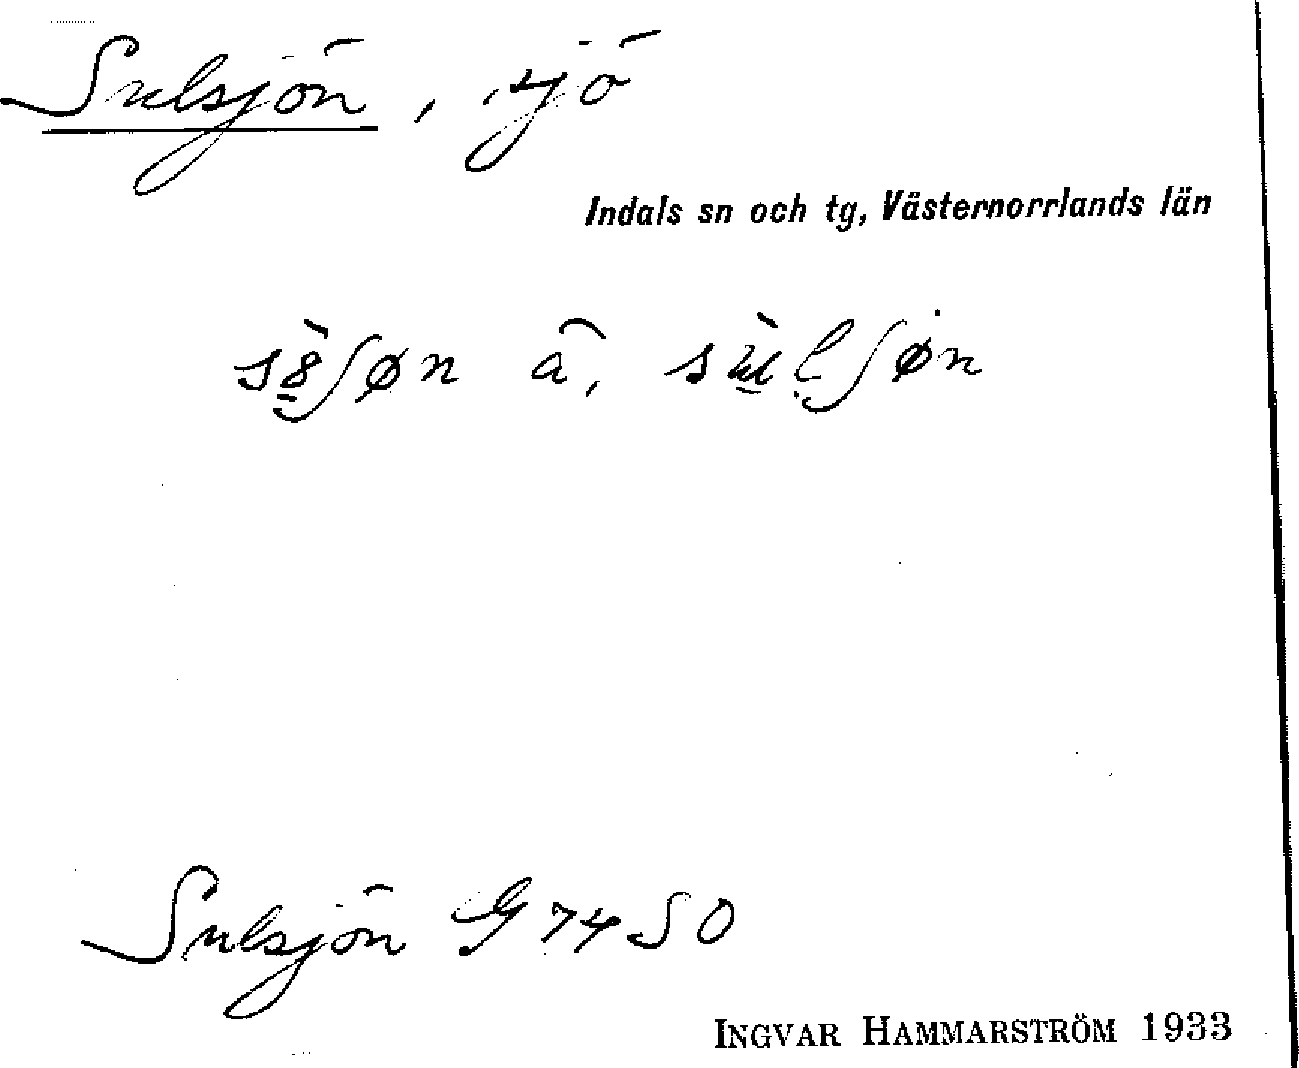 Sulsjön, sjö
Indals sn och tg, Västernorrlands län
Sulsjön G 74 SO
INGVAR HAMMARSTRÖM 1933